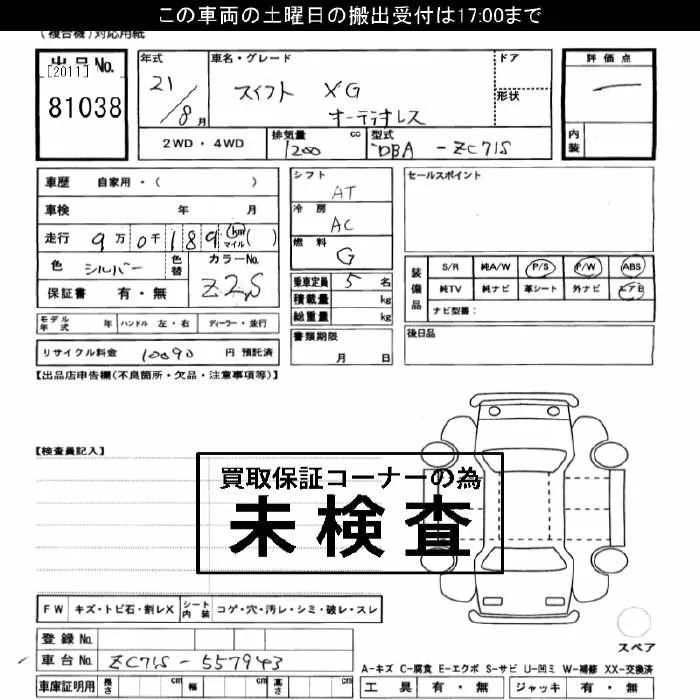 この車両の土曜日の搬出受付は17:00まで
(複合機)対応用紙
出品No.
[2011]
81038
年式
21/8月
車名・グレード
スイフト XG
オーディオレス
ドア
形状
評価点
内装
2WD・4WD
排気量 1200 cc
型式 DBA-ZC71S
車歴 自家用・( )
車検 年 月
走行 9万0千189 km マイル ( )
色 シルバー
色替
カラーNo. Z2S
保証書 有・無
シフト AT
冷房 AC
燃料 G
乗車定員 5 名
積載量 kg
総重量 kg
セールスポイント
装備品
S/R 純A/W P/S P/W ABS
純TV 純ナビ 革シート 外ナビ エアB
ナビ型番:
モデル年式 年 ハンドル 左・右 ディーラー・並行
書類期限
月 日
後日品
リサイクル料金 10090 円 預託済
【出品店申告欄(不良箇所・欠品・注意事項等)】
【検査員記入】
買取保証コーナーの為
未検査
FW キズ・トビ石・割レX シート内装 コゲ・穴・汚レ・シミ・破レ・スレ
スペア
登録No.
車台No. ZC71S-557943
A-キズ C-腐食 E-エクボ S-サビ U-凹ミ W-補修 XX-交換済
車庫証明用 長さ cm 幅 cm 高さ cm
工具 有・無 ジャッキ 有・無